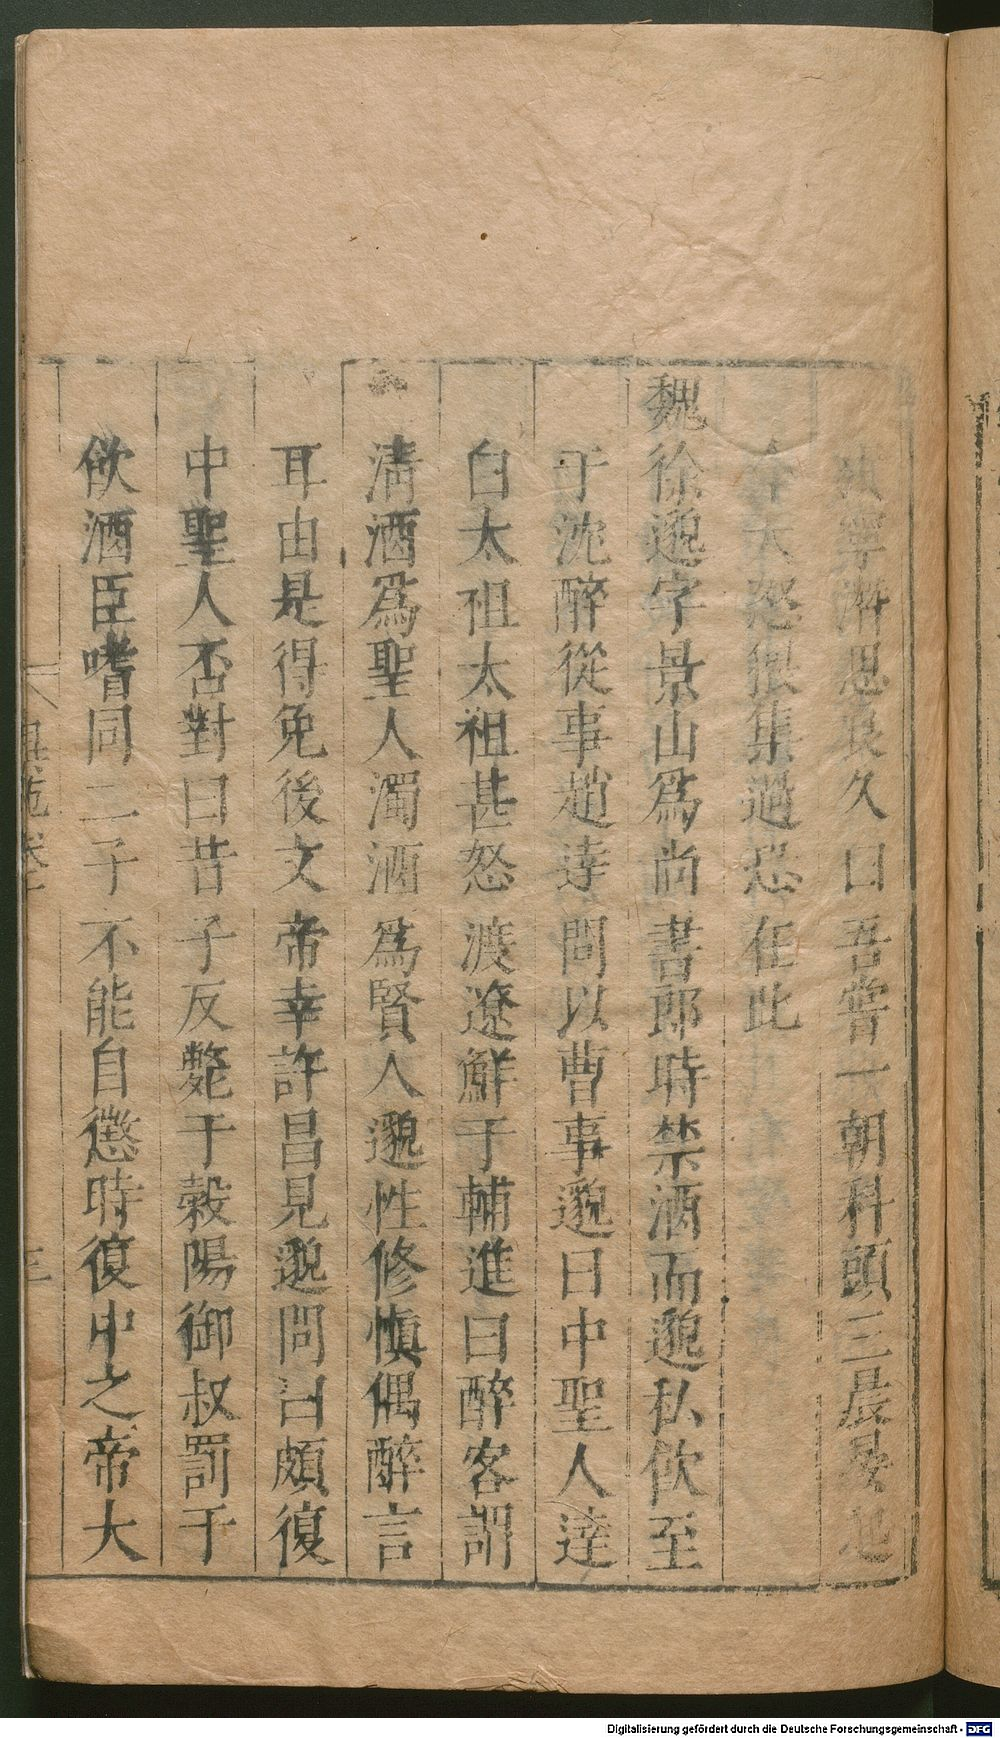 寧濟思哀久曰吾嘗一朝科頭三晨晏起
今天怒猥集過恐在此
魏徐邈字景山爲尚書郎時禁酒而邈私飲至
于沈醉從事趙達問以曹事邈曰中聖人達
白太祖太祖甚怒渡遼鮮于輔進曰醉客謂
清酒爲聖人濁酒爲賢人邈性修愼偶醉言
耳由是得免後文帝幸許昌見邈問曰頗復
中聖人否對曰昔子反斃于榖陽御叔罰于
飲酒臣嗜同二子不能自懲時復中之帝大
三
Digitalisierung gefördert durch die Deutsche Forschungsgemeinschaft - DFG